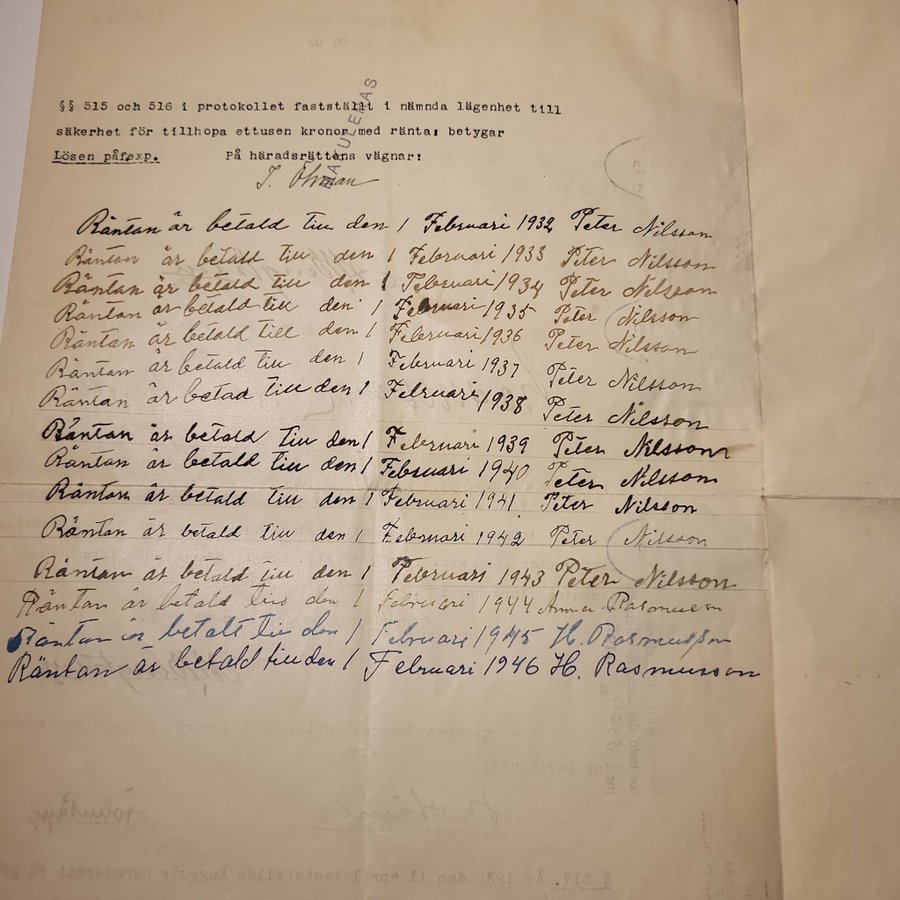 §§ 515 och 516 i protokollet fastställt i nämnda lägenhet till
säkerhet för tillhopa ettusen kronor med ränta; betygar
Lösen påf exp. På häradsrättens vägnar:
I. Öhman
MAKULERAS
Räntan är betald till den 1 Februari 1932 Peter Nilsson
Räntan är betald till den 1 Februari 1933 Peter Nilsson
Räntan är betald till den 1 Februari 1934 Peter Nilsson
Räntan är betald till den 1 Februari 1935 Peter Nilsson
Räntan är betald till den 1 Februari 1936 Peter Nilsson
Räntan är betald till den 1 Februari 1937 Peter Nilsson
Räntan är betad till den 1 Februari 1938 Peter Nilsson
Räntan är betald till den 1 Februari 1939 Peter Nilsson
Räntan är betald till den 1 Februari 1940 Peter Nilsson
Räntan är betald till den 1 Februari 1941 Peter Nilsson
Räntan är betald till den 1 Februari 1942 Peter Nilsson
Räntan är betald till den 1 Februari 1943 Peter Nilsson
Räntan är betald till den 1 Februari 1944 Anna Rasmusson
Räntan är betalt till den 1 Februari 1945 H. Rasmusson
Räntan är betald till den 1 Februari 1946 H. Rasmusson